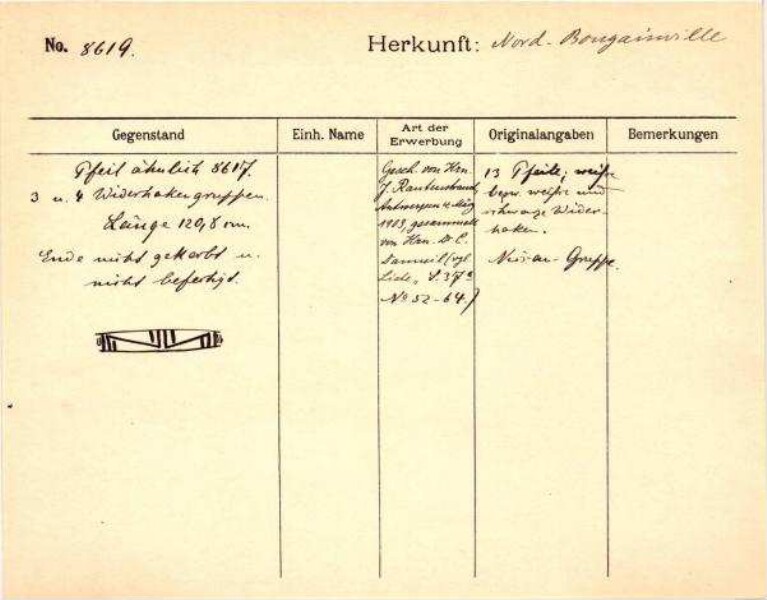 No. 8619.
Herkunft: Nord-Bougainville
Gegenstand
Einh. Name
Art der Erwerbung
Originalangaben
Bemerkungen
Pfeil ähnlich 8617.
3 u. 4 Widerhakengruppen.
Länge 120,8 cm.
Ende nicht gekerbt u.
nicht befestigt.
Gesch. von Hrn.
J. Rautenstrauch,
Antwerpen März
1903, gesammelt
von Hrn. Dr. C.
(vgl.
Liste, S. 37
No 52-64.)
13 Pfeile; weisse
bezw. weisse und
schwarze Wider-
haken.
Nissan-Gruppe.